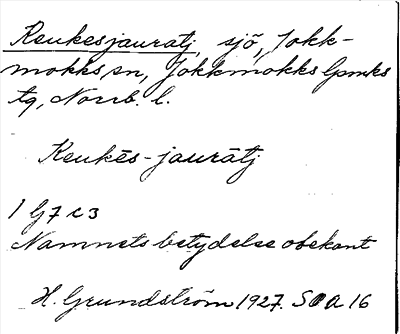 Reukesjauratj, sjö, Jokk-
mokks sn, Jokkmokks lpmks
tg, Norrb. l.
Reukēs-jaurātj
1 G7 c3
Namnets betydelse obekant
H. Grundström 1927. SOA 16